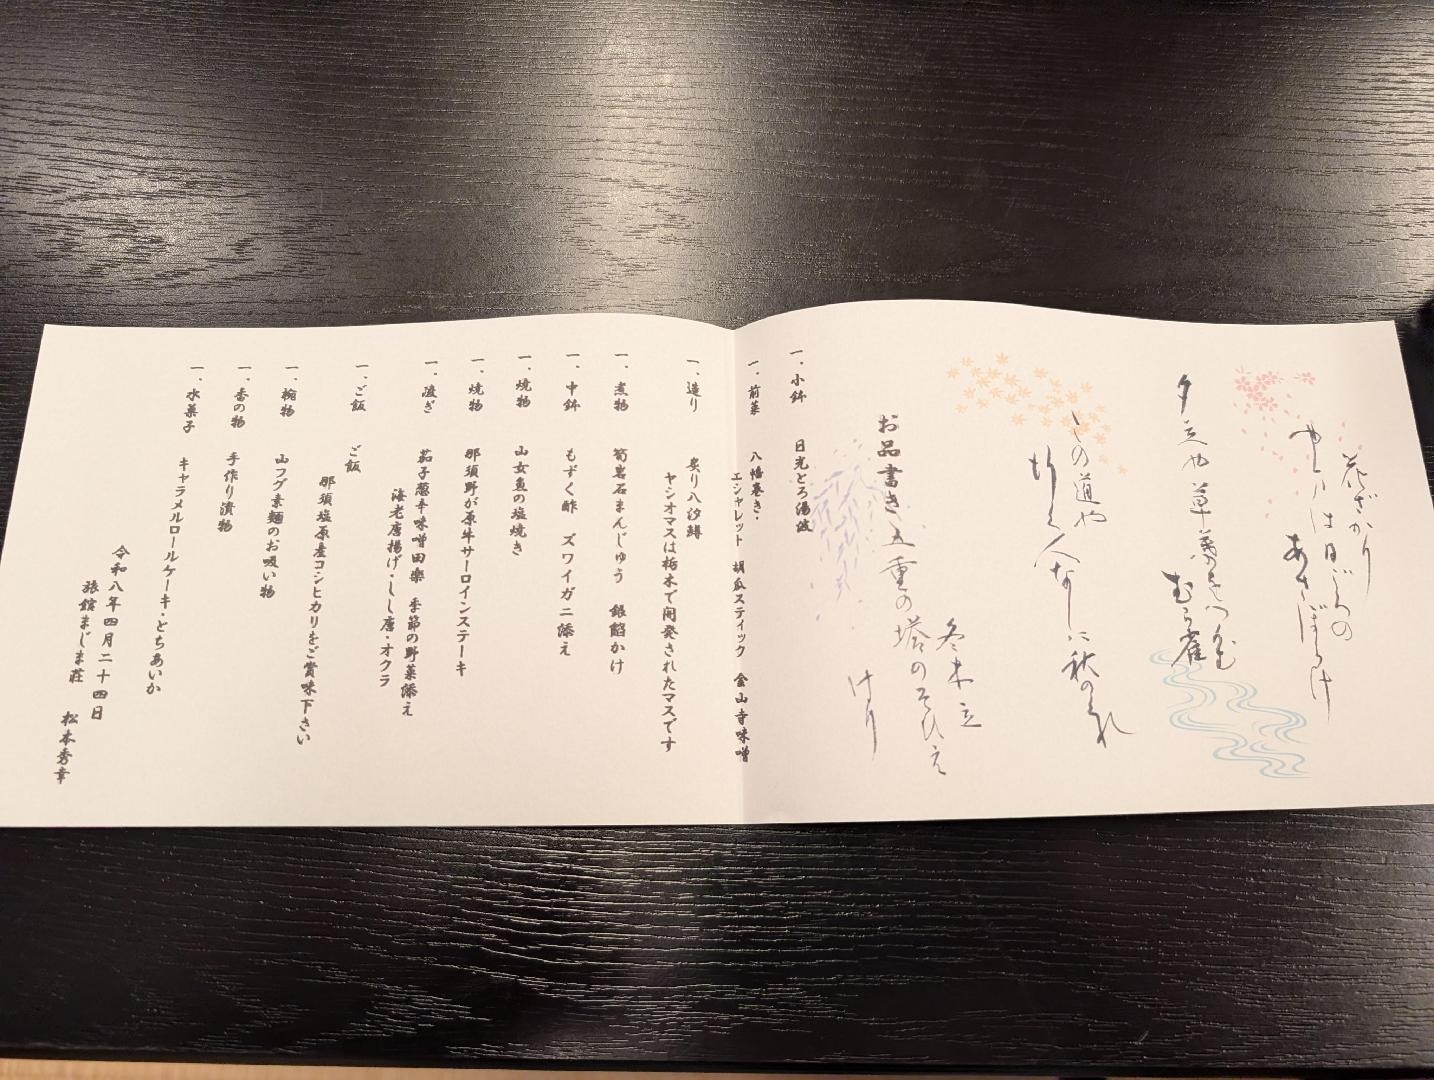 花ざかり
やまは日ごろの
あさぼらけ
夕立や草葉をつかむ
むら雀
この道や
行く人なしに秋のくれ
冬木立
五重の塔のそびえ
けり
お品書き
一、小鉢 日光とろ湯波
一、前菜 八幡巻き・
エシャレット 胡瓜スティック 金山寺味噌
一、造り 炙り八汐鱒
ヤシオマスは栃木で開発されたマスです
一、煮物 筍岩石まんじゅう 銀餡かけ
一、中鉢 もずく酢 ズワイガニ添え
一、焼物 山女魚の塩焼き
一、焼物 那須野が原牛サーロインステーキ
一、凌ぎ 茄子葱辛味噌田楽 季節の野菜添え
海老唐揚げ・しし唐・オクラ
一、ご飯 ご飯
那須塩原産コシヒカリをご賞味下さい
一、椀物 山フグ素麺のお吸い物
一、香の物 手作り漬物
一、水菓子 キャラメルロールケーキ・とちあいか
令和八年四月二十四日
旅館まじま荘 松本秀幸